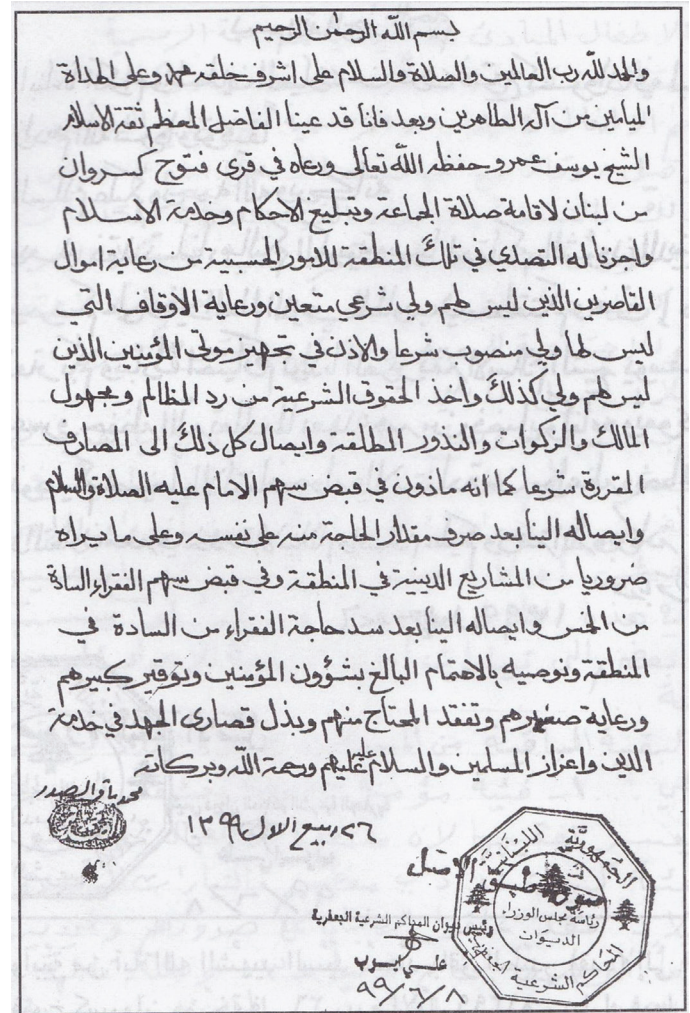 بسم الله الرحمن الرحيم
والحمد لله رب العالمين والصلاة والسلام على اشرف خلقه محمد وعلى الهداة
الميامين من آله الطاهرين وبعد فانا قد عينا الفاضل المعظم ثقة الاسلام
الشيخ يوسف عمرو حفظه الله تعالى ورعاه في قرى فتوح كسروان
من لبنان لاقامة صلاة الجماعة وتبليغ الاحكام وخدمة الاسلام
واجزنا له التصدي في تلك المنطقة للامور الحسبية من رعاية اموال
القاصرين الذين ليس لهم ولي شرعي متعين ورعاية الاوقاف التي
ليس لها ولي منصوب شرعا والاذن في تجهيز موتى المؤمنين الذين
ليس لهم ولي كذلك واخذ الحقوق الشرعية من رد المظالم ومجهول
المالك والزكوات والنذور المطلقة وايصال كل ذلك الى المصارف
المقررة شرعا كما انه مأذون في قبض سهم الامام عليه الصلاة والسلام
وايصاله الينا بعد صرف مقدار الحاجة منه على نفسه وعلى ما يراه
ضروريا من المشاريع الدينية في المنطقة وفي قبض سهم الفقراء السادة
من الخمس وايصاله الينا بعد سد حاجة الفقراء من السادة في
المنطقة ونوصيه بالاهتمام البالغ بشؤون المؤمنين وتوقير كبيرهم
ورعاية صغيرهم وتفقد المحتاج منهم وبذل قصارى الجهد في خدمة
الدين واعزاز المسلمين والسلام عليهم ورحمة الله وبركاته
محمد باقر الصدر
٢٦ ربيع الاول ١٣٩٩
الجمهورية اللبنانية
صورة طبق الاصل
رئاسة مجلس الوزراء
الديوان
المحاكم الشرعية الجعفرية
رئيس ديوان المحاكم الشرعية الجعفرية